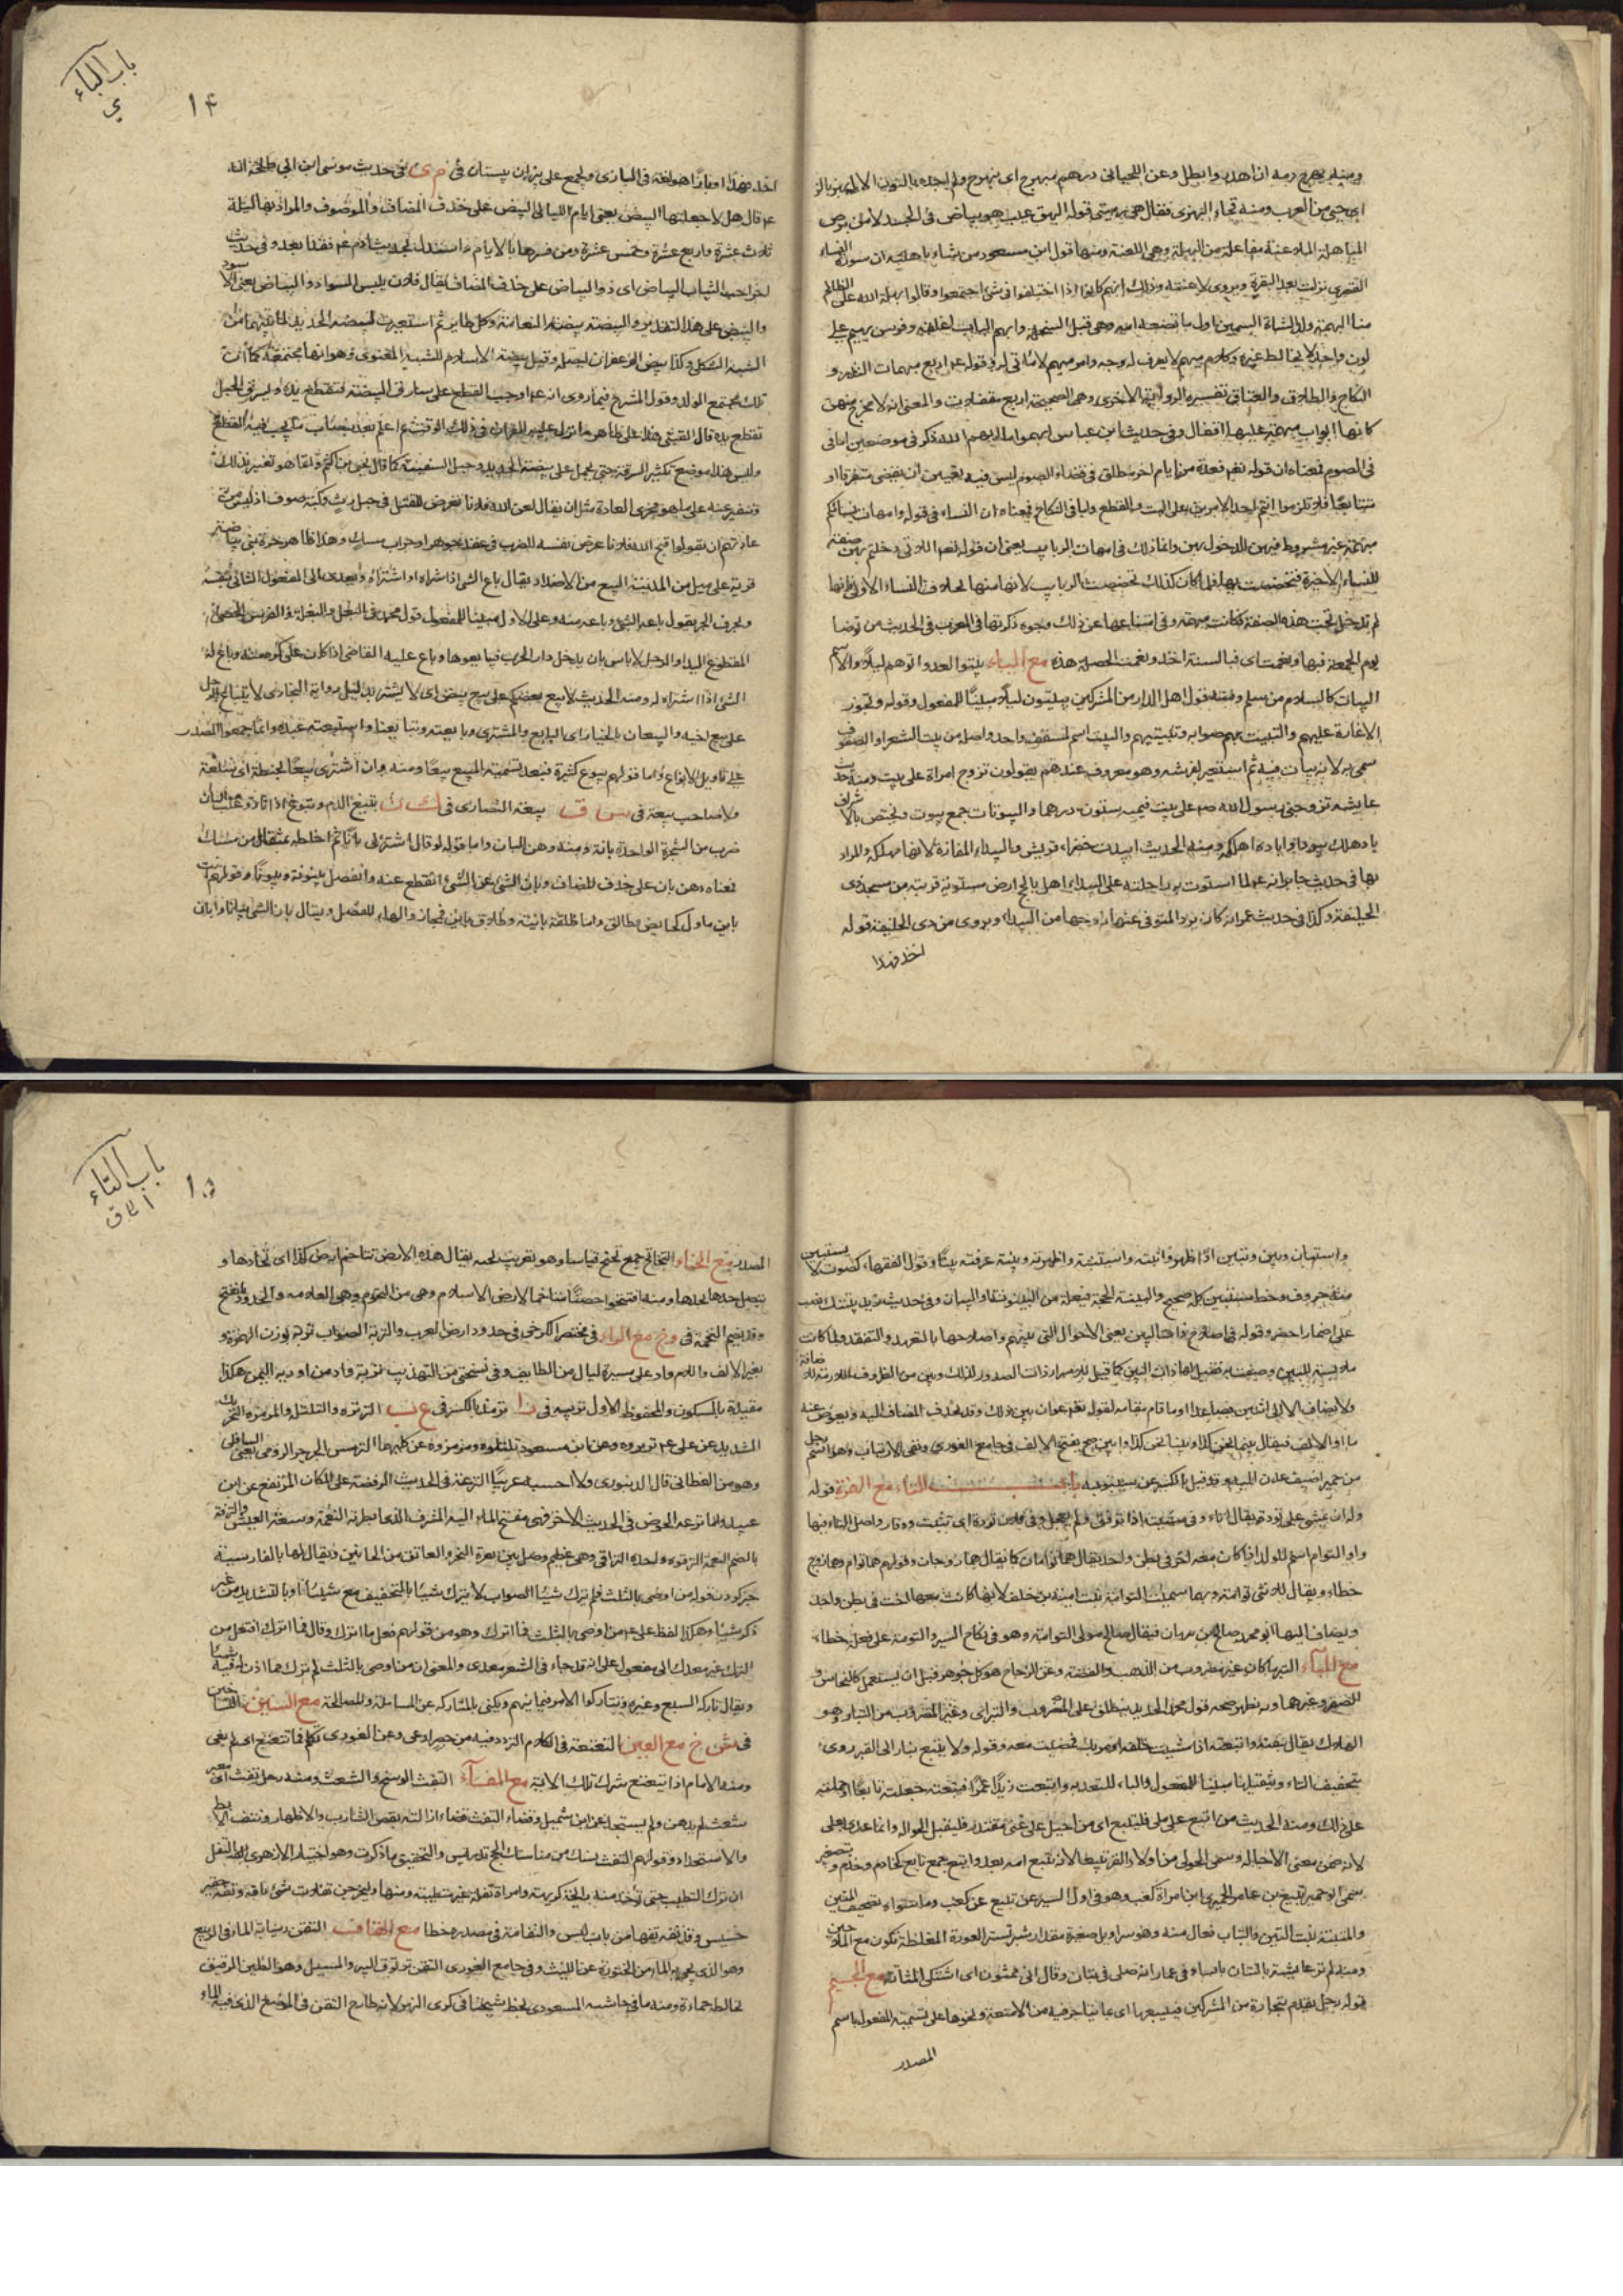 ومنه بهرج دمه اذا اهدر وابطل وعن اللحياني درهم مبهرج اى نبهرج ولم اجده بالنون الا له
المباهلة الملاعنة مفاعلة من البهلة وهى اللعنة ومنها قول ابن مسعود من شاء باهلته ان سورة النساء
القصرى نزلت بعد البقرة ويروى لاعنته وذلك انهم كانوا اذا اختلفوا فى شئ اجتمعوا وقالوا بهلة الله على الظالم
لون واحد لا يخالطه غيره وكلام مبهم لا يعرف له وجه وامر مبهم لا مأتى له وقوله اربع مبهمات النذر و
النكاح والطلاق والعتاق تفسيره الرواية الاخرى وهى الصحيحة اربع مقفلات والمعنى انه لا مخرج منهن
كانها ابواب مبهمة عليها اقفال وفى حديث ابن عباس ابهموا ما ابهم الله ذكر فى موضعين اما فى
فى الصوم فمعناه ان قوله تعم فعدة من ايام اخر مطلق فى قضاء الصوم ليس فيه تعيين ان يقضى متفرقا او
متتابعا فلا تلزموا انتم احد الامرين على البت والقطع واما فى النكاح فمعناه ان النساء فى قوله وامهات نسائكم
مبهمة غير مشروط فيهن الدخول بهن وانما ذلك فى امهات الربايب يعنى ان قوله تعم اللاتى دخلتم بهن صفة
للنساء الاخيرة فتخصصت بها فلما كان كذلك تخصصت الربايب لانها منها بخلاف النساء الاولى فانها
لم تدخل تحت هذه الصفة فكانت مبهمة وفى امتناعها عن ذلك وجوه ذكرتها فى المعرب فى الحديث من توضا
يوم الجمعة فبها ونعمت اى فبالسنة اخذ ونعمت الخصلة هذه مع الياء بيتوا العدو اتوهم ليلا والاسم
البيات كالسلام من سلم ومنه قول اهل الدار من المشركين يبيتون ليلا مبنيا للمفعول وقوله وتجوز
الاغارة عليهم والتبييت بهم صوابه وتبييتهم والبيت اسم لمسقف واحد واصله من بيت الشعر او الصوف
سمى به لانه يبات فيه ثم استعير لفرشه وهو معروف عندهم يقولون تزوج امراة على بيت ومنه حديث
عايشة تزوجنى رسول الله صم على بيت قيمته ستون درهما والبيوتات جمع بيوت وتختص بالاشراف
باد هلك بيودا واباده اهلكه ومنه الحديث ابيدت خضراء قريش والبيداء المفازة لانها مهلكة والمراد
بها فى حديث جابر انه عم لما استوت به راحلته على البيداء اهل بالحج ارض مستوية قريبة من مسجد ذى
الحليفة وكذا فى حديث عمر انه كان يرد المتوفى عنها زوجها من البيداء ويروى من ذى الحليفة قوله
اخذ فهدا
باب الباء
ى
١٤
اخذ فهدا او بازا هو لغة فى البازى ويجمع على بيزان بيستان فى م ى فى حديث موسى ابن ابى طلحة انه
عم قال هل لا جعلتها البيض يعنى ايام الليالى البيض على حذف المضاف والموصوف والمراد بها ليلة
ثلاث عشرة واربع عشرة وخمس عشرة ومن فسرها بالايام واستدل بحديث ادم عم فقد ابعد وفى حديث
اخر احب الثياب البياض اى ذو البياض على حذف المضاف يقال فلان يلبس السواد والبياض يعنى الاسود
والبيض على هذا التقدير والبيضة بيضة النعامة وكل طاير ثم استعيرت لبيضة الحديد لما بينهما من
الشبه الشكلى وكذا بيض الزعفران لبصله وقيل بيضة الاسلام للشبه المعنوى وهو انها مجتمعه كما ان
تلك مجتمع الولد وقول المشرح فيما روى انه عم اوجب القطع على سارق البيضة فتقطع يده ويسرق الحبل
فتقطع يده قال القتبى هذا على ظاهر ما نزل عليه القرآن فى ذلك الوقت ثم اعلم بعد بنصاب ما يجب فيه القطع
وليس هذا موضع تكثير السرقة حتى يحمل على بيضة الحديد وحبل السفينة كما قال يحيى بن اكثم وانما هو تعيير بذلك
وتنفير عنه على ما هو مجرى العادة مثل ان يقال لعن الله فلانا تعرض للقتل فى حبل رث وكبة صوف اذ ليس من
عادتهم ان يقولوا قبح الله فلانا عرض نفسه للضرب فى عقد جوهر او جراب مسك وهذا ظاهر
قرية على ميل من المدينة البيع من الاضداد يقال باع الشئ اذا شراه او اشتراه ويعدى الى المفعول الثانى بنفسه
وبحرف الجر يقول باعه الشئ وباعه منه وعلى الاول مبنيا للمفعول قول محمد فى البغل والبغلة والفرس الخصى
المقطوع اليد او الرجل لا باس بان يدخل دار الحرب فيبايعوها وباع عليه القاضى اذا كان على كره منه وباع له
الشئ اذا اشتراه له ومنه الحديث لا يبع بعضكم على بيع بعض اى لا يشتر بدليل رواية البخارى لا يبتاع الرجل
على بيع اخيه والبيعان بالخيار اى البايع والمشترى وبايعته وتبايعنا واستبعته عبده وانما جمعوا المصدر
على تاويل الانواع واما قولهم بيوع كثيرة فبعد تسمية المبيع بيعا ومنه وان اشترى بيعا بحنطة اى سلعة
ولا صاحب بيعة فى س ق بيعة النصارى فى ك ن تبيغ الدم وتبوغ اذا ثار وغلب البان
ضرب من الشجرة الواحدة بانة ومنه دهن البان واما قوله لو قال اشترلى بانا ثم اخلطه بمثقال من مسك
فمعناه دهن بان على حذف المضاف وبان الشئ عن الشئ انقطع عنه وانفصل بينونة وبيونا وقولهم انت
باين ماول كحايض وطالق واما طلقة باينة وطلاق باين فمجاز والهاء للفصل ويقال بان الشئ بيانا وابان
واستبان وبين وتبين اذا ظهر وابنته واستبنته واظهرته وبينته عرفته بينا وقول الفقهاء كصوت لا يستبين
منه حروف وخط مستبين كله صحيح والبينة الحجة فيعلة من البينونة او البيان وفى حديث زيد بينتك بنصب
على اضمار احضر وقوله فى اصلاح ذات البين يعنى الاحوال التى بينهم واصلاحها بالتعهد والتفقد ولما كانت
ملابسة للبين وصفت به فقيل لها ذات البين كما قيل للاسرار ذات الصدور لذلك وبين من الظروف اللازمة للاضافة
ولا يضاف الا الى اثنين فصاعدا او ما قام مقامه لقوله تعم عوان بين ذلك وقد يحذف المضاف اليه ويعوض عنه
ما او الالف فيقال بينما نحن كذا وبينا نحن كذا وابين صح بفتح الالف فى جامع الغورى ونفى الارتياب وهو اسم رجل
من حمير اضيف عدن اليه وقد قيل بالكسر عن سيبويه باب التاء مع الهمزة قوله
ولان يمشى على تودة يقال اتاد فى مشيته اذا ترفق ولم يعجل وفى فلان تودة اى تثبت ووقار واصل التاء فيها
واو التوام اسم للولد اذا كان معه اخر فى بطن واحد يقال هما توامان كما يقال هما زوجان وقولهم هما توام وهما زوج
خطاء ويقال للانثى توامة وبها سميت التوامة بنت امية بن خلف لانها كانت معها اخت فى بطن واحد
ويضاف اليها ابو محمد صالح بن نبهان فيقال صالح مولى التوامة وهو فى نكاح السير والتومة على فعلة خطاء
مع الباء التبر ما كان غير مضروب من الذهب والفضة وعن الزجاج هو كل جوهر قبل ان يستعمل كالنحاس و
الصفر وغيرهما وبه يظهر صحة قول محمد الحديد ينطلق على المضروب والتبر اى وغير المضروب من التبار وهو
الهلاك يقال تبعته واتبعته اذا مشيت خلفه او مر بك فمضيت معه وقوله ولا يتبع بنار الى القبر روى
بتخفيف التاء وتثقيلها مبنيا للمفعول والباء للتعدية واتبعت زيدا عمرا فتبعته جعلته تابعا او حملته
على ذلك ومنه الحديث من اتبع على ملى فليتبع اى من احيل على غنى مقتدر فليقبل الحوالة وانما عدى بعلى
لانه ضمن معنى الاحالة وسمى الحولى من اولاد البقر تبيعا لانه يتبع امه بعد والتبع جمع تابع كخادم وخدم وبتصغيره
سمى ابو حمير تبيع بن عامر الحميرى ابن امراة كعب وهو فى اول السير عن تبيع عن كعب وما سواه تصحيف
والمتبنة بيت التبن والتبان فعال منه وهو سراويل صغيرة مقدار شبر تستر العورة المغلظة تكون مع الملاحين
ومنه لم تر عايشة بالتبان باسا وفى عمار انه صلى فى تبان وقال انى ممثون اى اشتكى المثانة مع الجيم
قوله رجل يقدم بتجارة من المشركين فيبيعها اى بما يتجر فيه من الامتعة ونحوها على تسمية المفعول باسم
المصدر
باب التاء
الى ق
١٥
المصدر مع الخاء التخاتج جمع تختج قياسا وهو تعريب تخته يقال هذه الارض تتاخم ارض كذا اى تحادها و
يتصل حدها بحدها ومنه افتتحوا حصنا متاخما لارض الاسلام وهى من التخوم وهى العلامة والحدود بفتح
وقد يضم التخمة فى و خ مع الراء فى مختصر الكرخى فى حدود ارض العرب والتربة الصواب تربة بوزن الهمزة و
بغير الالف واللام واد على مسيرة ليال من الطايف وفى نسختى من التهذيب تربة واد من اودية اليمن هكذا
مقيدة بالسكون والمحفوظ الاول تربية فى ر ا ترمذ بالكسر فى ع ب الترترة والتلتلة والمزمزة التحريك
الشديد عن على عم ترتروه وعن ابن مسعود تلتلوه ومزمزوه عن كليهما الترمس الجرجر الرومى يعنى الباقلى
وهو من القطانى قال الدينورى ولا احسبه عربيا الترعة فى الحديث الروضة على المكان المرتفع عن ابى
عبيد واما ترعة الحوض فى الحديث الاخر فهى مفتح الماء اليه المترف الذى ابطرته النعمة وسعة العيش والترفة
بالضم النعمة الترقوة واحدة التراقى وهى عظم وصل بين ثغرة النحر والعاتق من الجانبين ويقال لها بالفارسية
جنبر كردن قوله من اوصى بالثلث فلم يترك شيئا الصواب لا يترك شيئا بالتخفيف مع شيئا او بالتشديد من غير
ذكر شيئا وهكذا لفظ على عم من اوصى بالثلث فما اترك وهو من قولهم فعل ما اترك وقال فما اترك افتعل من
الترك غير معدى الى مفعول على انه قد جاء فى الشعر معدى والمعنى ان من اوصى بالثلث لم يترك مما اذن له فيه شيئا
ويقال تاركه البيع وغيره وتتاركوا الامر فيما بينهم ويكنى بالمتاركة عن المسالمة والمصالحة مع السين التساخين
فى س خ مع العين التعتعة فى الكلام التردد فيه من حصر او عى وعن الغورى تكلم فما تتعتع اى لم يعى
ومنه الامام اذا تتعتع ترك تلك الاية مع الفاء التفث الوسخ والشعث ومنه رجل تفث اى مغبر
شعث لم يدهن ولم يستحد عن ابن شميل وقضاء التفث قضاء ازالته بقص الشارب والاظفار ونتف الابط
والاستحداد وقولهم التفث نسك من مناسك الحج تدريس والتحقيق ما ذكرت وهو اختيار الازهرى التفل
ان تترك التطيب حتى توجد منه رايحة كريهة وامراة تفلة غير متطيبة ومنها وليخرجن تفلات شئ تافه وتفه حقير
خسيس وقد تفه تفها من باب لبس والتفاهة فى مصدره خطا مع القاف التقن رسابة الماء فى الربيع
وهو الذى يجى به الماء من الخثورة عن الليث وفى جامع الغورى التقن ترنوق البير والمسيل وهو الطين الرقيق
يخالطه حماءة ومنه ما فى حاشية المسعودى بخط شيخنا فى كرى النهر لانه طالع التقن فى الموضع الذى فيه الماء